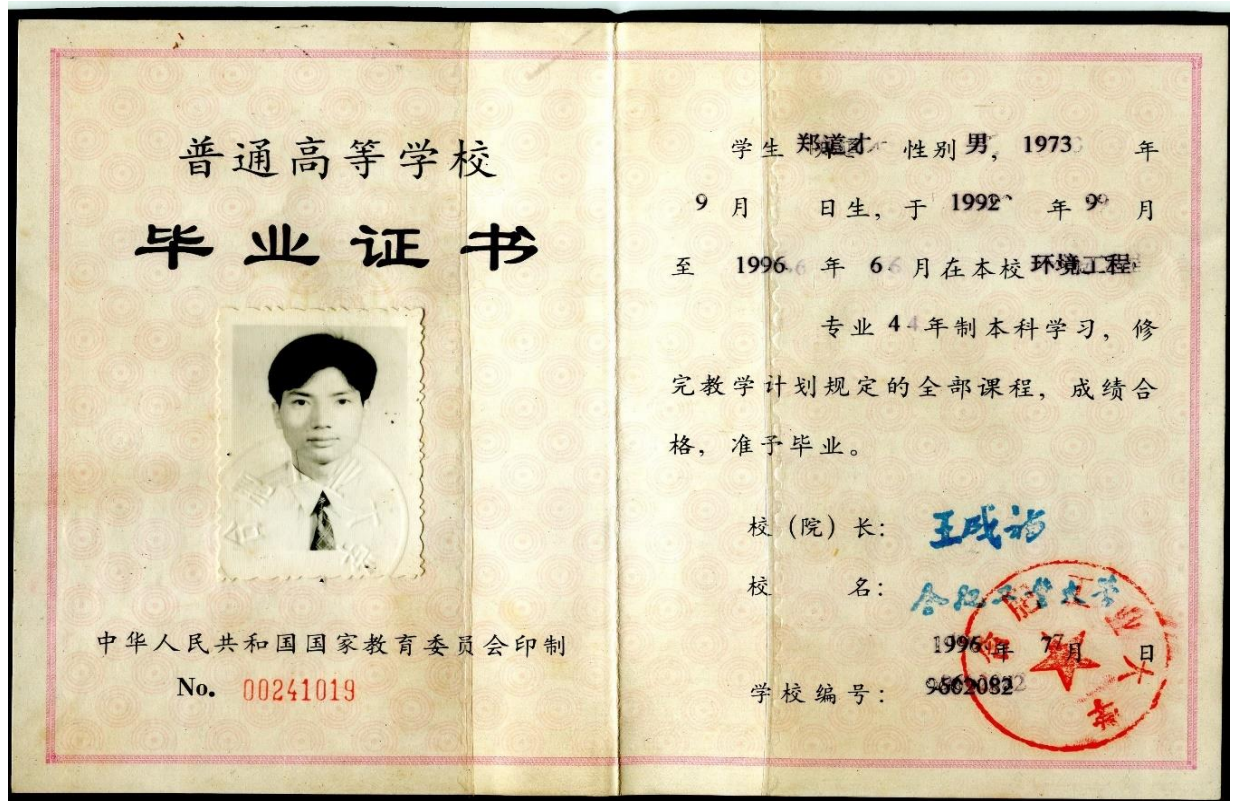 普通高等学校
毕业证书
中华人民共和国国家教育委员会印制
No. 00241019
学生 郑道才 性别 男, 1973 年
9 月 日生, 于 1992 年 9 月
至 1996 年 6 月在本校 环境工程
专业 4 年制本科学习, 修
完教学计划规定的全部课程, 成绩合
格, 准予毕业。
校(院)长: 王成福
校 名: 合肥工业大学
1996 年 7 月 日
学校编号: 9602082
合肥工业大学